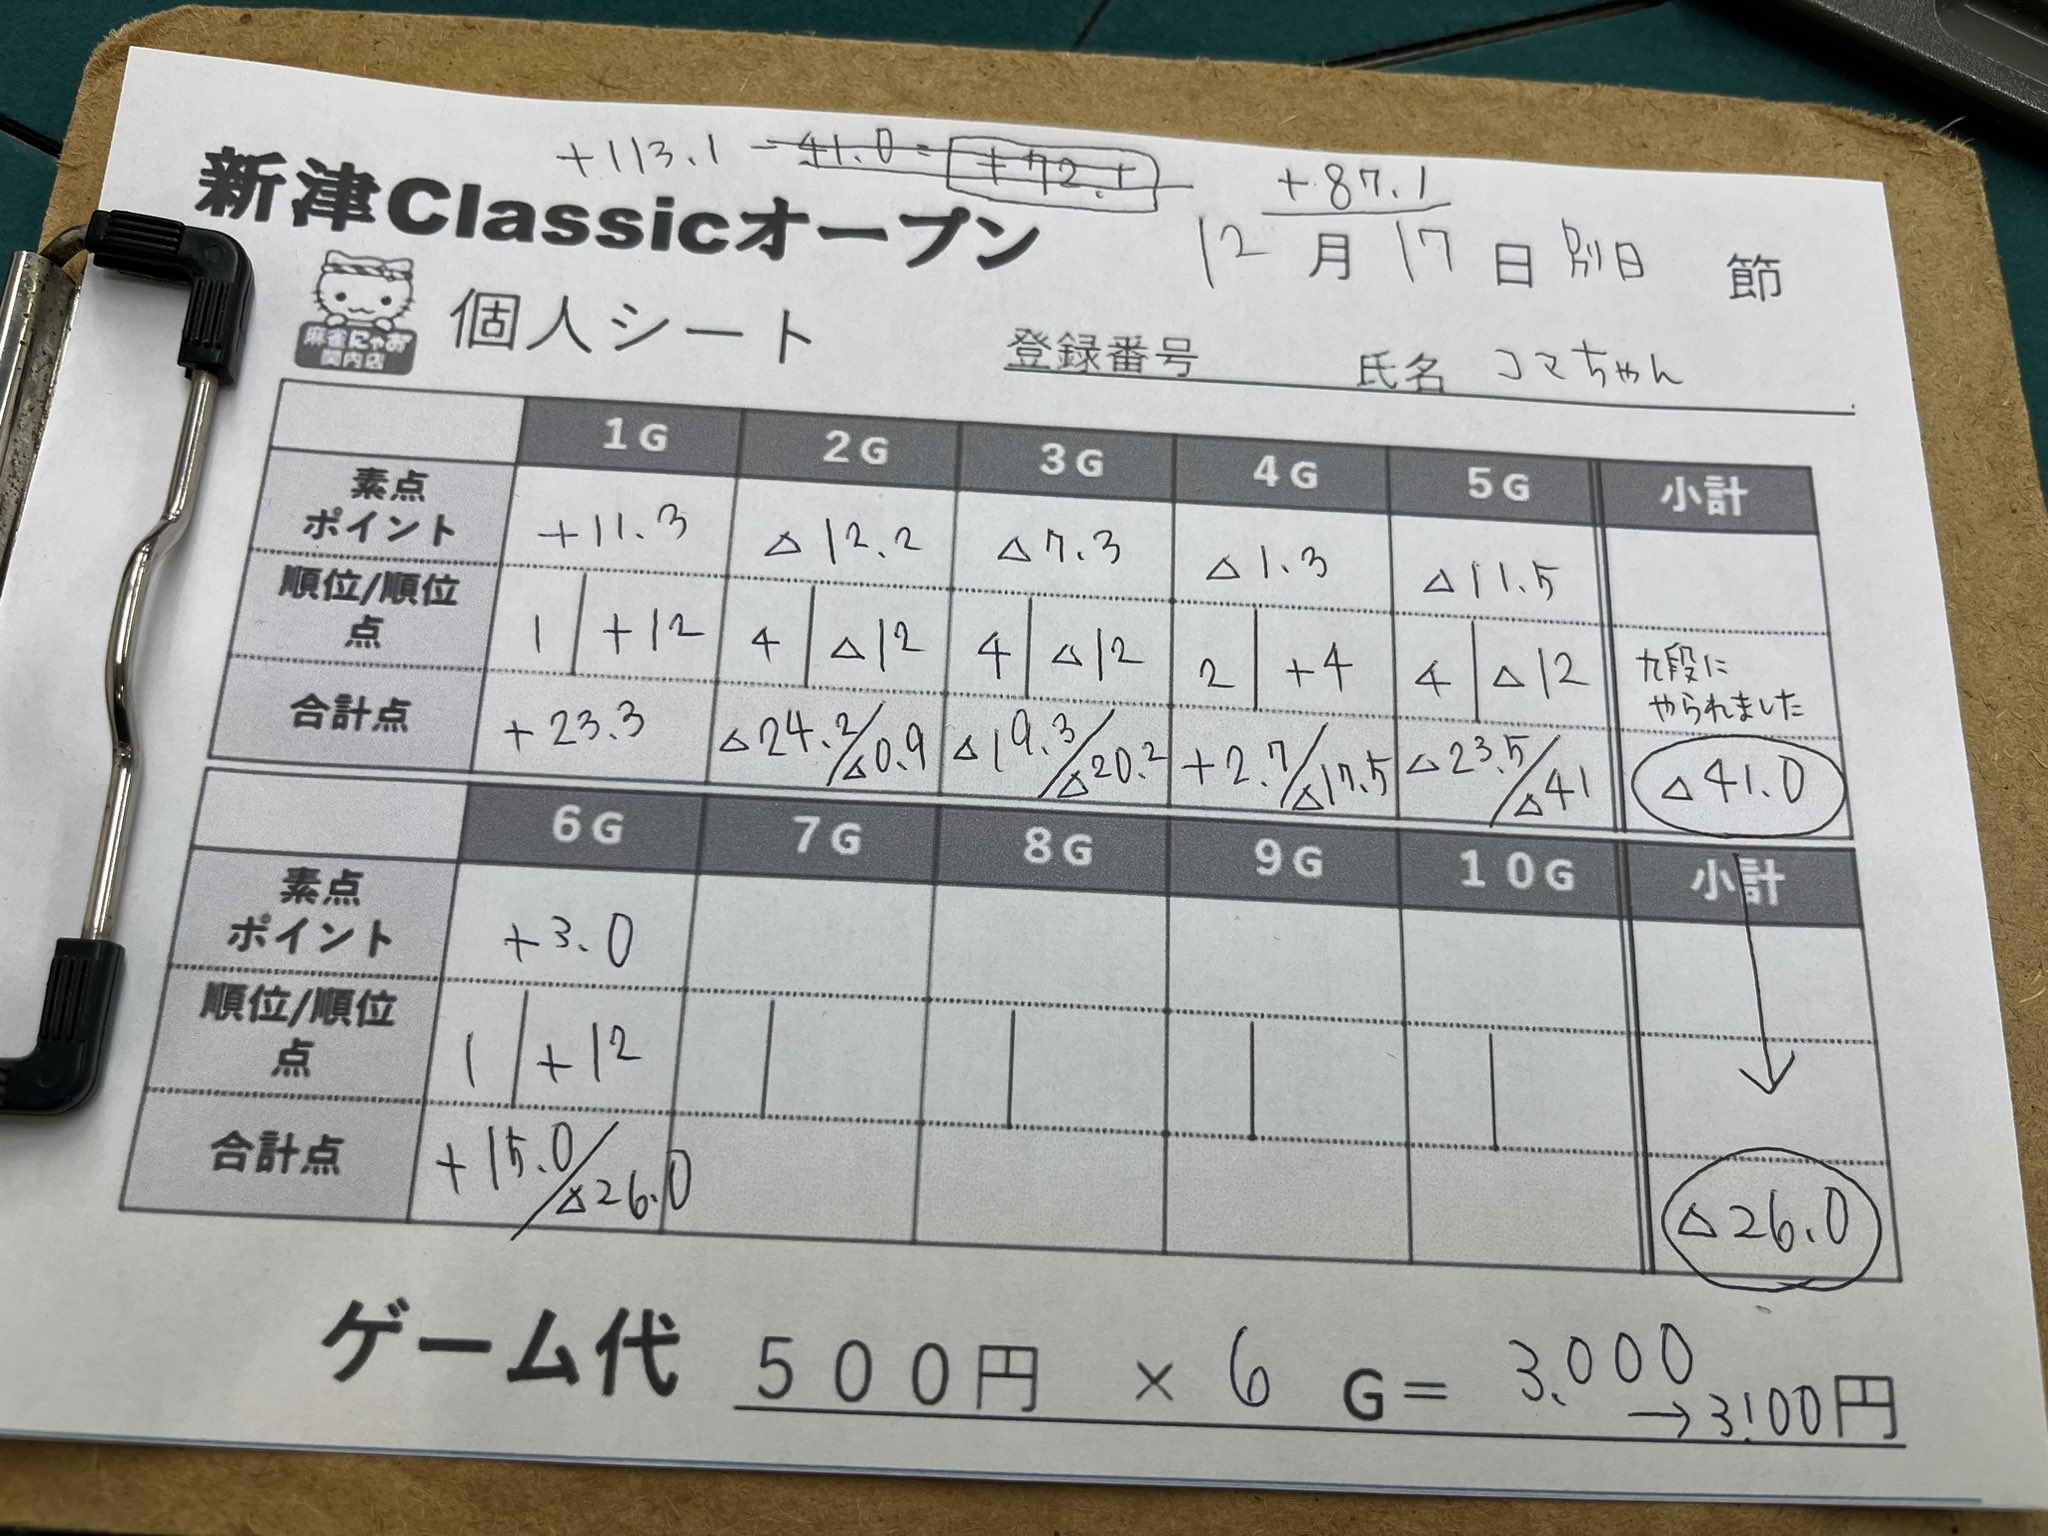 +113.1 -41.0= +72.1 +87.1
新津Classicオープン 12月17日別日 節
麻雀にゃお
関内店
個人シート 登録番号 氏名 コマちゃん
1G 2G 3G 4G 5G 小計
素点
ポイント +11.3 △12.2 △7.3 △1.3 △11.5
順位/順位
点 1 +12 4 △12 4 △12 2 +4 4 △12 九段に
やられました
合計点 +23.3 △24.2/△0.9 △19.3/△20.2 +2.7/△17.5 △23.5/△41 △41.0
6G 7G 8G 9G 10G 小計
素点
ポイント +3.0
順位/順位
点 1 +12
合計点 +15.0/△26.0 △26.0
ゲーム代 500円 × 6 G= 3.000
→3.100円